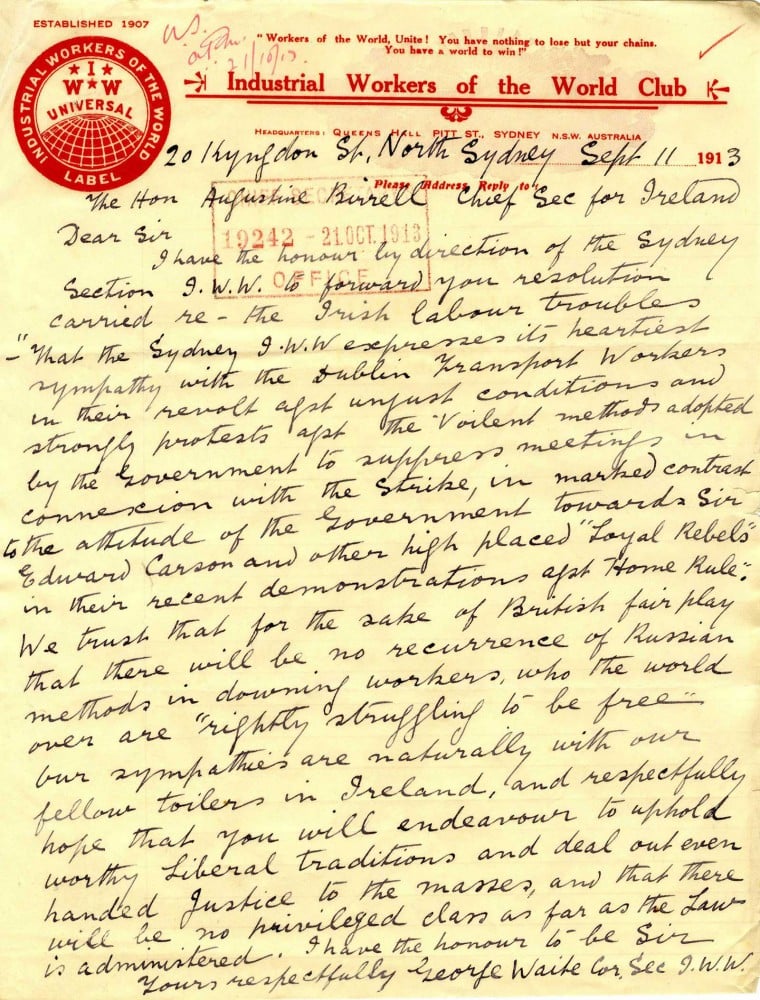 ESTABLISHED 1907
INDUSTRIAL WORKERS OF THE WORLD
I
W W
UNIVERSAL
LABEL
21/10/13.
"Workers of the World, Unite! You have nothing to lose but your chains.
You have a world to win!"
Industrial Workers of the World Club
HEADQUARTERS: QUEENS HALL PITT ST., SYDNEY N.S.W. AUSTRALIA
20 Kyngdon St, North Sydney Sept 11 1913
Please Address Reply to
The Hon Augustine Birrell Chief Sec for Ireland
Dear Sir
19242 - 21. OCT. 1913
OFFICE
I have the honour by direction of the Sydney
Section I.W.W. to forward you resolution
carried re - the Irish labour troubles
- "That the Sydney I.W.W expresses its heartiest
sympathy with the Dublin Transport Workers
in their revolt agst unjust conditions and
strongly protests agst the Voilent methods adopted
by the Government to suppress meetings in
connexion with the Strike, in marked contrast
to the attitude of the Government towards Sir
Edward Carson and other high placed "Loyal Rebels"
in their recent demonstrations agst "Home Rule".
We trust that for the sake of British fair play
that there will be no recurrence of Russian
methods in downing workers, who the world
over are "rightly struggling to be free"
Our sympathies are naturally with our
fellow toilers in Ireland, and respectfully
hope that you will endeavour to uphold
worthy Liberal traditions and deal out even
handed Justice to the masses, and that there
will be no privileged class as far as the Law
is administered. I have the honour to be Sir
Yours respectfully George Waite Cor, Sec I.W.W.